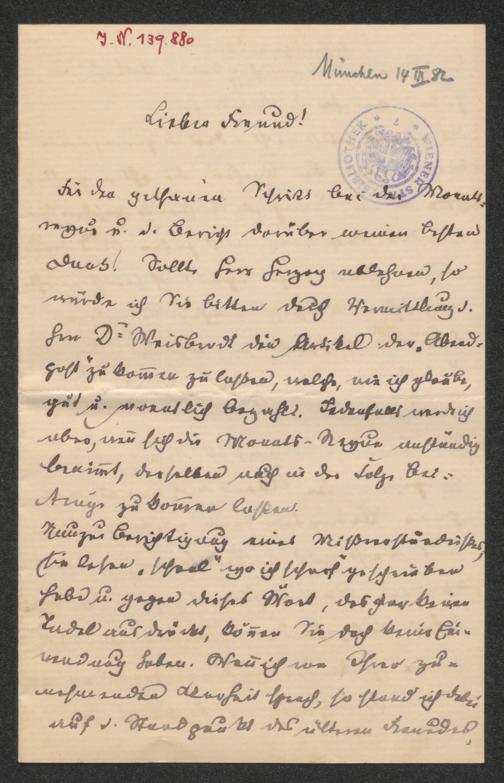 J. N. 139.880
München 14 IX 82
Lieber Freund!
WIENER STADTBIBLIOTHEK
Für den gethanen Schritt bei der Monats-
revue u. d. Bericht darüber meinen besten
Dank! Sollte Herr Herzog ablehnen, so
würde ich Sie bitten durch Vermittlung d.
Hrn Dr Weisbrodt den Artikel der „Abend-
post" zu kommen zu laßen, welche, wie ich glaube,
gut u. monatlich bezahlt. Jedenfalls werde ich
aber, wenn sich die Monats-Revue anständig
benimmt, derselben auch in der Folge Bei-
träge zu kommen laßen.
Nun zur Berichtigung eines Mißverständnißes,
Sie lesen „scheel" wo ich scharf geschrieben
habe u. gegen dieses Wort, das gar keinen
Tadel ausdrückt, können Sie doch keine Ein-
wendung haben. Wenn ich von Ihrer zu-
nehmenden Klarheit sprach, so stand ich dabei
auf d. Standpunkt des älteren Freundes,